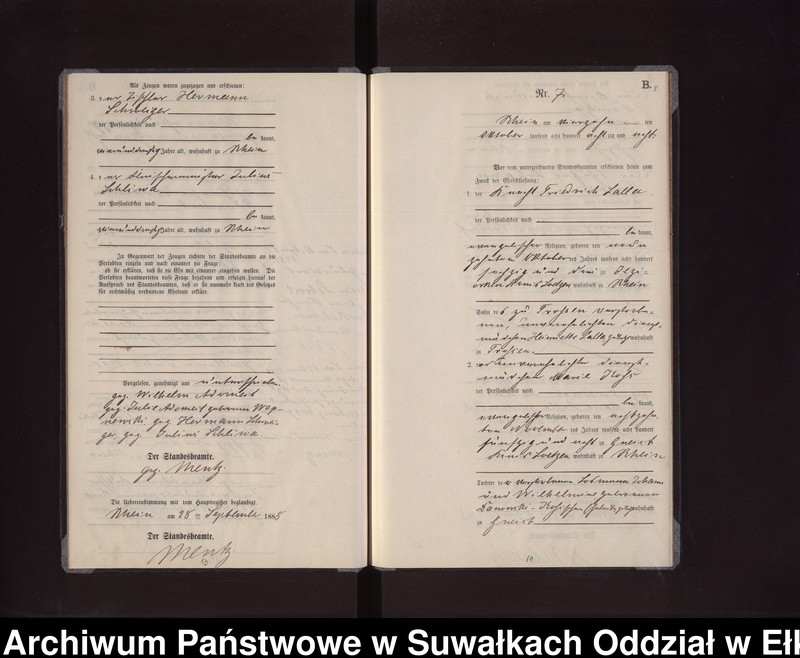 Als Zeugen waren zugezogen und erschienen:
3. der Tischler Hermann
Schweiger
der Persönlichkeit nach
be kannt,
vierunddreißig Jahre alt, wohnhaft zu Rhein
4. der Fleischermeister Julius
Schliwa
der Persönlichkeit nach
be kannt,
Jahre alt, wohnhaft zu Rhein
In Gegenwart der Zeugen richtete der Standesbeamte an die
Verlobten einzeln und nach einander die Frage:
ob sie erklären, daß sie die Ehe mit einander eingehen wollen. Die
Verlobten beantworteten diese Frage bejahend und erfolgte hierauf der
Ausspruch des Standesbeamten, daß er sie nunmehr kraft des Gesetzes
für rechtmäßig verbundene Eheleute erkläre.
Vorgelesen, genehmigt und unterschrieben
gez. Wilhelm Adomeit
gez. Julie Adomeit geborene
gez. Hermann Schwei-
ger, gez. Julius Schliwa.
Der Standesbeamte.
gez. Mentz.
Die Uebereinstimmung mit dem Hauptregister beglaubigt.
Rhein am 28 ten September 1888
Der Standesbeamte.
Mentz
10
B.
Nr. 7
Rhein am vierzehn ten
Oktober tausend acht hundert achtzig und acht
Vor dem unterzeichneten Standesbeamten erschienen heute zum
Zweck der Eheschließung:
1. der Knecht Friedrich Lalla
der Persönlichkeit nach
be kannt,
evangelischer Religion, geboren den neun
zehnten Oktober des Jahres tausend acht hundert
sechzig und drei zu
Kreis Loetzen wohnhaft zu Rhein
Sohn der zu Trossen verstorbe-
nen, unverehelichten Dienst-
mädchen Henriette Lalla wohnhaft
zu Trossen
2. die unverehelichte Dienst-
mädchen Marie
der Persönlichkeit nach
be kannt,
evangelischer Religion, geboren den achtzehn
ten November des Jahres tausend acht hundert
fünfzig und acht zu Gneist
Kreis Loetzen wohnhaft zu Rhein
Tochter der verstorbenen Losmann
und Wilhelmine geborenen
wohnhaft
zu Gneist
14
Archiwum Państwowe w Suwałkach Oddział w Ełk